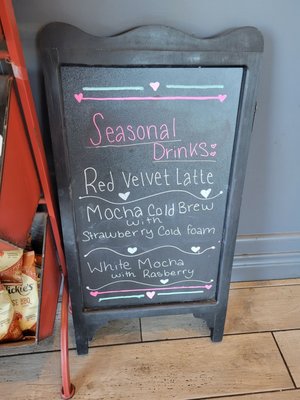 Seasonal
Drinks
Red Velvet Latte
Mocha Cold Brew
with
Strawberry Cold foam
White Mocha
with Rasberry